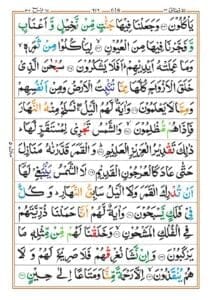 يَاْكُلُوْنَ ۝ وَجَعَلْنَا فِيْهَا جَنّٰتٍ مِّنْ نَّخِيْلٍ وَّاَعْنَابٍ
وَّفَجَّرْنَا فِيْهَا مِنَ الْعُيُوْنِ ۝ لِيَاْكُلُوْا مِنْ ثَمَرِهٖ ۙ
وَمَا عَمِلَتْهُ اَيْدِيْهِمْ ؕ اَفَلَا يَشْكُرُوْنَ ۝ سُبْحٰنَ الَّذِيْ
خَلَقَ الْاَزْوَاجَ كُلَّهَا مِمَّا تُنْۢبِتُ الْاَرْضُ وَمِنْ اَنْفُسِهِمْ
وَمِمَّا لَا يَعْلَمُوْنَ ۝ وَاٰيَةٌ لَّهُمُ الَّيْلُ ۖۚ نَسْلَخُ مِنْهُ النَّهَارَ
فَاِذَا هُمْ مُّظْلِمُوْنَ ۝ وَالشَّمْسُ تَجْرِيْ لِمُسْتَقَرٍّ لَّهَا ؕ
ذٰلِكَ تَقْدِيْرُ الْعَزِيْزِ الْعَلِيْمِ ۝ وَالْقَمَرَ قَدَّرْنٰهُ مَنَازِلَ
حَتّٰى عَادَ كَالْعُرْجُوْنِ الْقَدِيْمِ ۝ لَا الشَّمْسُ يَنْۢبَغِيْ لَهَاۤ
اَنْ تُدْرِكَ الْقَمَرَ وَلَا الَّيْلُ سَابِقُ النَّهَارِ ؕ وَكُلٌّ
فِيْ فَلَكٍ يَّسْبَحُوْنَ ۝ وَاٰيَةٌ لَّهُمْ اَنَّا حَمَلْنَا ذُرِّيَّتَهُمْ
فِي الْفُلْكِ الْمَشْحُوْنِ ۝ وَخَلَقْنَا لَهُمْ مِّنْ مِّثْلِهٖ مَا
يَرْكَبُوْنَ ۝ وَاِنْ نَّشَاْ نُغْرِقْهُمْ فَلَا صَرِيْخَ لَهُمْ وَلَا هُمْ
يُنْقَذُوْنَ ۝ اِلَّا رَحْمَةً مِّنَّا وَمَتَاعًا اِلٰى حِيْنٍ ۝